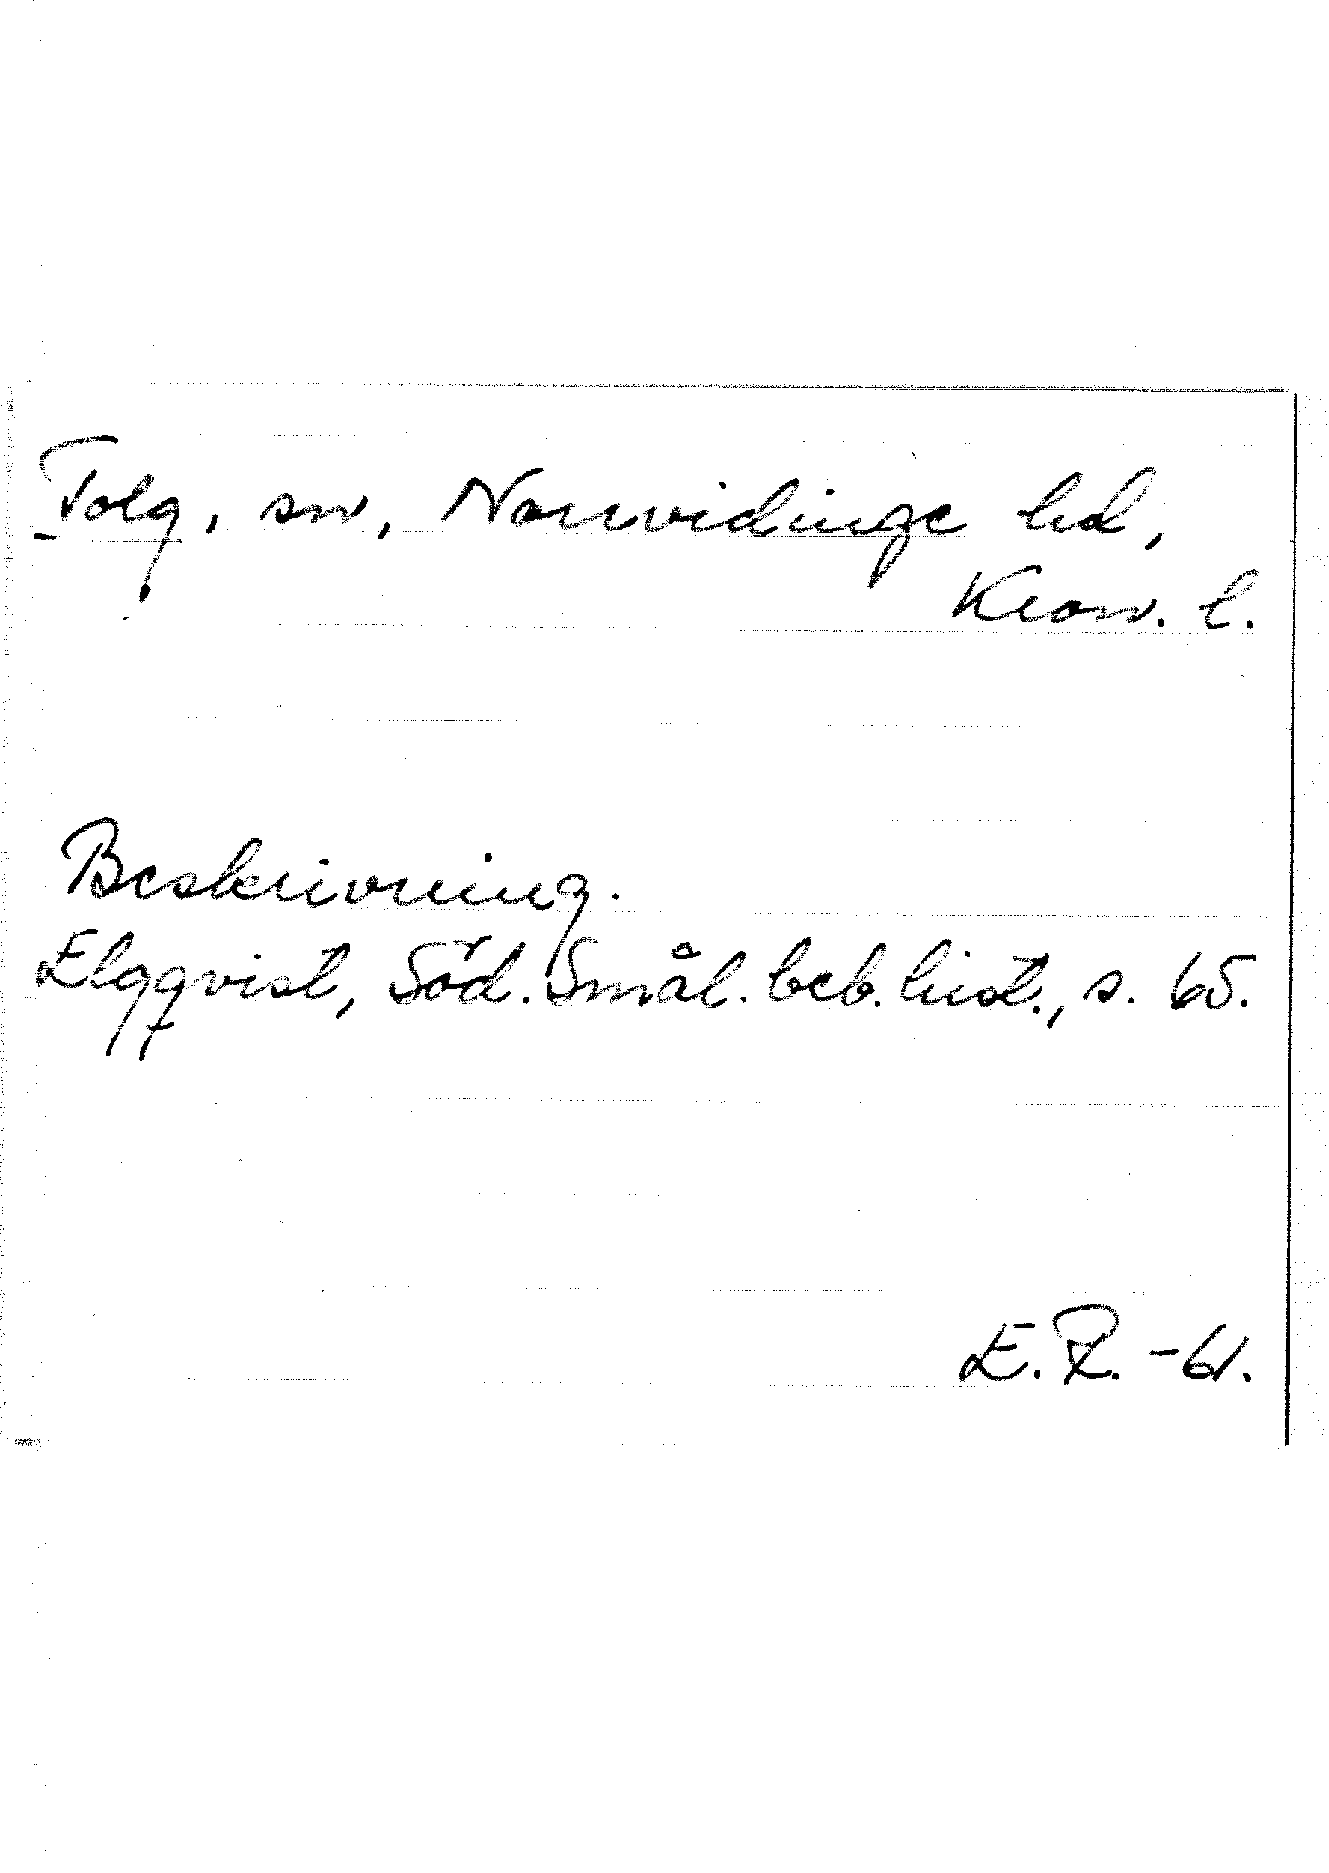 Tolg, sn, Norrvidinge hd,
Kron. l.
Beskrivning.
Elgqvist, Söd. Smål. beb. hist., s. 65.
E. Z. -61.